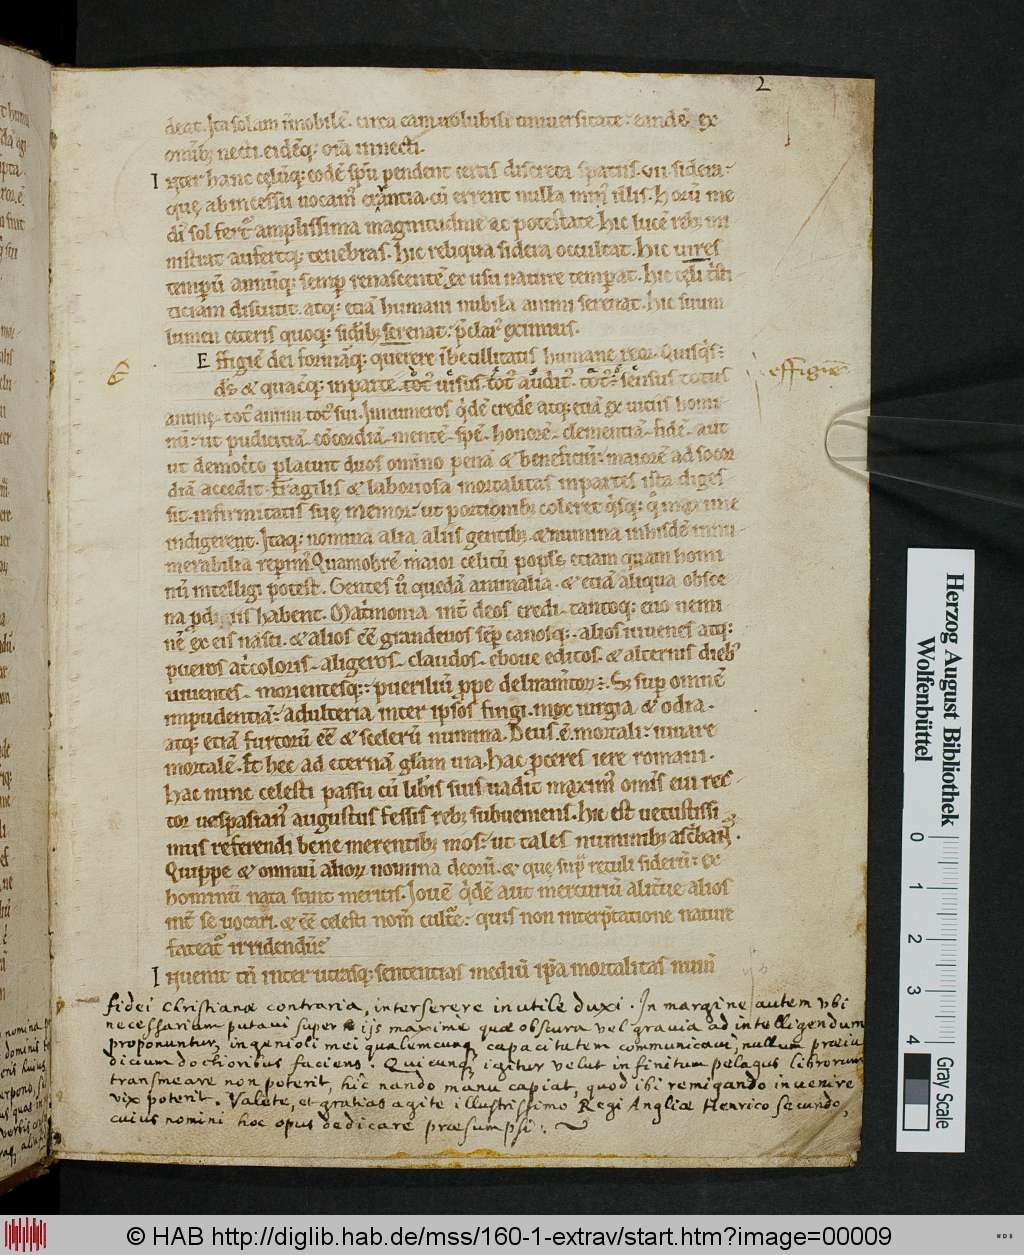 2
deat. Ita solam īmobilē. circa eam uolubili uniuersitate: eandē ex
omnibꝫ necti. eidēqꝫ oīa inniecti.
Inter hanc cęlūqꝫ eodē spū pendent certis discreta spatiis. vii sidera:
quę ab incessu uocamꝰ errantia. cū errent nulla minꝰ illis. Horū me
diꝰ sol fert᷑ amplissima magnitudine ac potestate. hic lucē rebꝫ mi
nistrat aufertqꝫ tenebras. hic reliqua sidera occultat. hic uires
temporū annūqꝫ semper renascentē ex usu nature temperat. hic cęli tristi
ticiam discutit. atqꝫ etiā humani nubila animi serenat. hic suum
lumen ceteris quoqꝫ sidibꝫ serenat: p̄clarꝰ eximius.
Effigiē dei formāqꝫ querere ībecillitatis humane reor. Quisqꝰs:
ds̄ & quacūqꝫ in parte. totꝰ uisus. totꝰ auditꝰ. totꝰ sensus totus
animę. totꝰ animi totꝰ sui. Innumeros qͥdē credere atqꝫ etiā ex uiciis homi
nū: ut pudicitiā. cōcordiā. mentē. spē. honorē. clementiā. fidē. aut
ut democrito placuit duos omīno penā & beneficiū: maiorē ad socor
diā accedit. Fragilis & laboriosa mortalitas in partes ista diges
sit. infirmitatis suę memor: ut portionibꝫ coleret qͥsqꝫ qͦ maxime
indigerent. Itaqꝫ nomina alia aliis gentibꝫ. & numina in hisdē innu
merabilia reperimꝰ. Quamobrē maior celitū populꝰ etiam quam homi
nū intelligi potest. Gentes uͦ quedā animalia. & etiā aliqua obsce
na p diis habent. Matrimonia int̄ deos credi. tantoqꝫ euo nemi
nē ex eis nasci. & alios eē grandeuos semp̄ canosqꝫ. alios iuuenes atqꝫ
pueros atricoloris. aligeros. claudos. ex ouo editos. & alternis diebꝰ
uiuentes. morientesqꝫ: pueriliū ꝓpe deliramtorꝫ. Sꝫ super omnē
impudentiā: adulteria inter ipsos fingi. mox iurgia & odia.
atqꝫ etiā furtorū eē & scelerū numina. Deus ē mortali: iuuare
mortalē. Et hec ad eternā glām uia. hac ꝓceres iere romani.
hac nunc celesti passu cū liberis suis uadit maximꝰ omnis eui rec
tor uespasianꝰ augustus fessis rebꝫ subueniens. hic est uetustissi
mus referendi bene merentibꝫ mos: ut tales numinibꝫ ascribant.
Quippe & omniū alioꝝ nomina deorū. & quę supra retuli siderū: ex
hominū nata sunt meritis. Iouē qͥdē aut mercuriū aliterue alios
int̄ se uocari. & eē celesti nomē cultrē: quis non interp̄tatione nature
fateat᷑ irridendūꝫ
Inuenit tn̄ inter utrasqꝫ sententias mediū ip̄a mortalitas numē
effigiē
fidei Christianæ contraria, interserere inutile duxi. In margine autem vbi
necessarium putavi super ijs maxime quæ obscura vel gravia ad intelligendum
proponuntur, ingenioli mei qualemcunq; capacitatem communicavi, nullum præiu
dicium doctioribus faciens. Quicunq; igitur velut infinitum pelagus librorum
transmeare non poterit, hîc nando manu capiat, quod ibi remigando invenire
vix poterit. Valete, et gratias agite illustrissimo Regi Angliæ Henrico secundo,
cuius nomini hoc opus dedicare præsumpsi.
Herzog August Bibliothek
Wolfenbüttel
0 1 2 3 4
Gray Scale
© HAB http://diglib.hab.de/mss/160-1-extrav/start.htm?image=00009